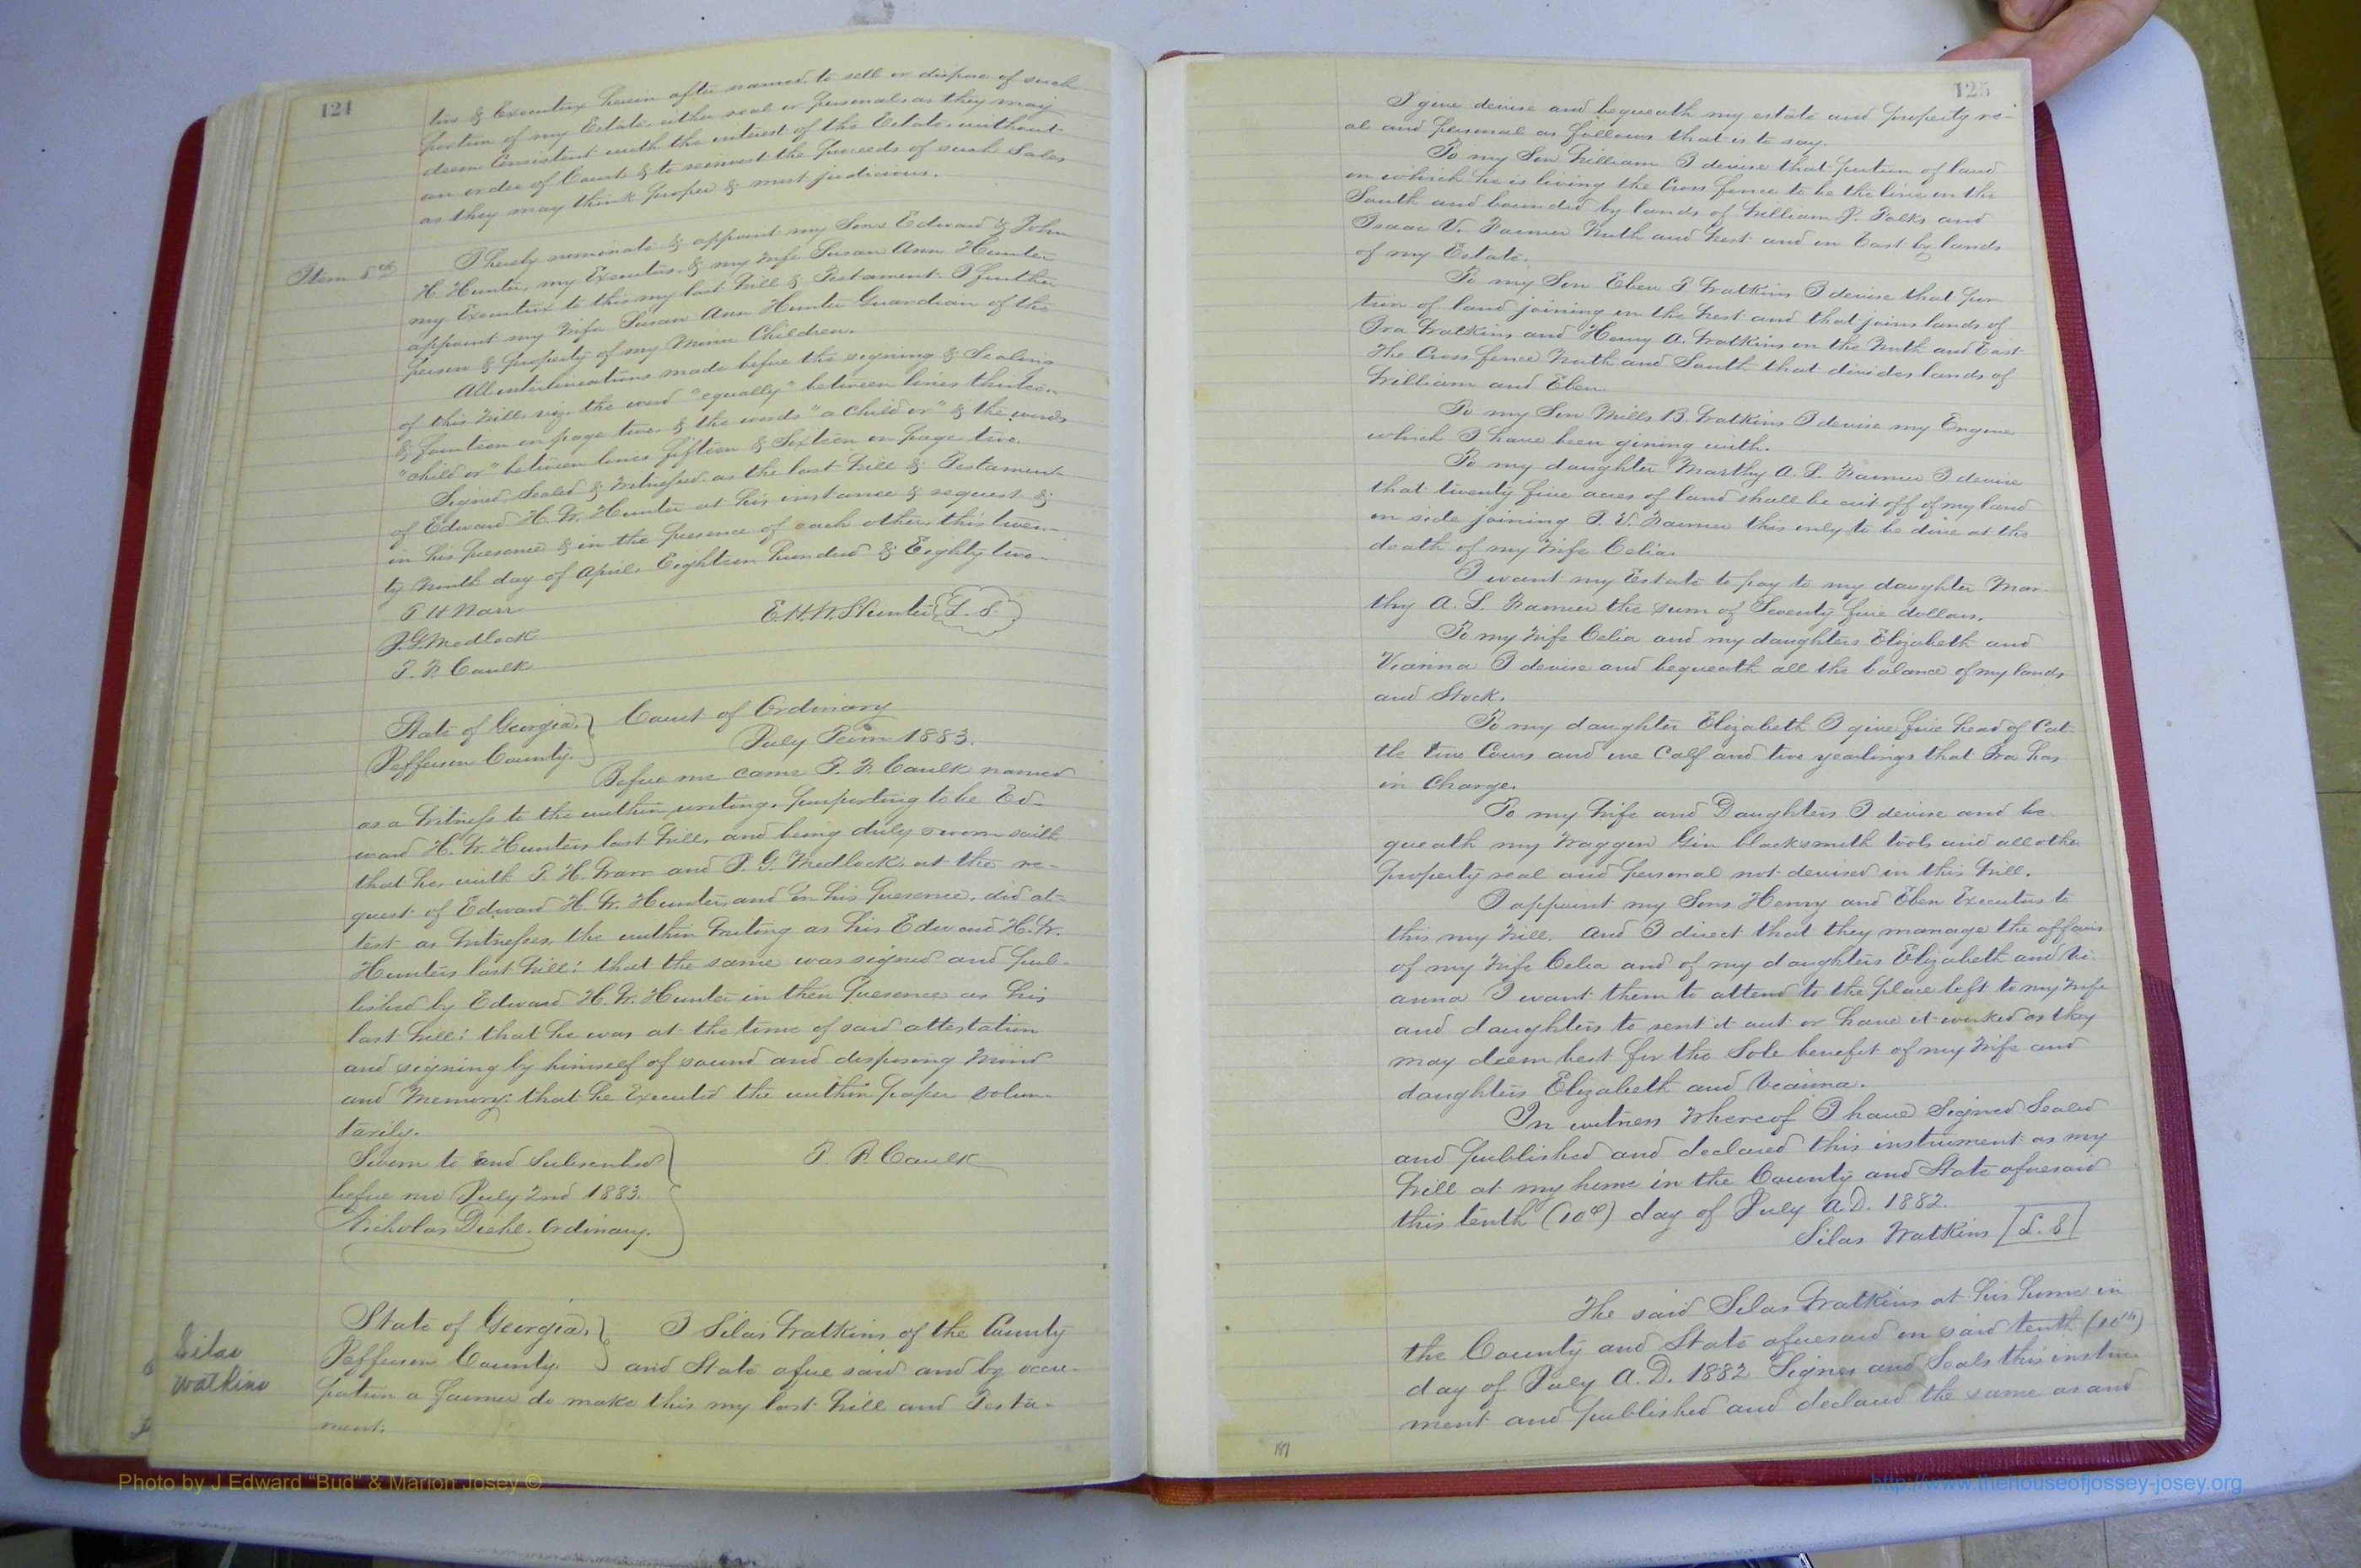 124
tors & Executrix herein after named, to sell or dispose of such
portion of my Estate, either real or personal, as they may
deem Consistent with the interest of the Estate, without
an order of Court, & to reinvest the proceeds of such Sales
as they may think proper & most judicious.
Item 5th
I hereby nominate & appoint my Sons Edward & John
H. Hunter, my Executors, & my Wife Susan Ann Hunter
my Executrix to this my last Will & Testament. I further
appoint my Wife Susan Ann Hunter Guardian of the
person & property of my Minor Children.
All interlineations made before the signing & Sealing
of this Will, viz. the word "equally" between lines thirteen
& fourteen on page two & the words "a child or" & the words
"child or" between lines fifteen & Sixteen on page two.
Signed, Sealed & Witnessed as the last Will & Testament
of Edward H. W. Hunter at his instance & request &
in his presence & in the presence of each other, this twen-
ty Ninth day of April, Eighteen hundred & Eighty two
E. H. W. Hunter L. S.
J. G. Medlock
T. F. Caulk
State of Georgia, Court of Ordinary
Jefferson County. July Term 1883.
Before me came T. F. Caulk named
as a Witness to the within writing, purporting to be Ed-
ward H. W. Hunters last Will, and being duly sworn saith
that he, with T. H. and J. G. Medlock, at the re-
quest of Edward H. W. Hunter, and in his presence, did at-
test as Witnesses, the within Writing as his Edward H. W.
Hunters last Will; that the same was signed and pub-
lished by Edward H. W. Hunter in their presence as his
last Will; that he was at the time of said attestation
and signing by himself of sound and disposing Mind
and Memory; that he Executed the within paper volun-
tarily.
Sworn to and Subscribed
T. F. Caulk
before me July 2nd 1883.
Nicholas Diehl. Ordinary.
Silas
Watkins
State of Georgia, I Silas Watkins of the County
Jefferson County. and State afore said and by occu-
pation a farmer do make this my last Will and Testa-
ment.
125
I give devise and bequeath my estate and property re-
al and personal as follows that is to say.
To my Son William I devise that portion of land
on which he is living the Cross fence to be the line on the
South and bounded by lands of William J. Polks and
Isaac V. Farmer North and West and on East by lands
of my Estate.
To my Son Eben T Watkins I devise that por-
tion of land joining on the West and that joins lands of
Ira Watkins and Henry A. Watkins on the North and East
The Cross fence North and South that divides lands of
William and Eben.
To my Son Mills B. Watkins I devise my Engine
which I have been gining with.
To my daughter Marthy A. L. Farmer I devise
that twenty five acres of land shall be cut off of my land
on side joining I. V. Farmer this only to be done at the
death of my Wife Celia.
I want my Estate to pay to my daughter Mar-
thy A. L. Farmer the sum of Seventy five dollars.
To my Wife Celia and my daughters Elizabeth and
Vianna I devise and bequeath all the balance of my lands
and Stock.
To my daughter Elizabeth I give five head of Cat-
tle two Cows and one Calf and two yearlings that Ira has
in Charge.
To my Wife and Daughters I devise and be-
queath my Waggon Gin blacksmith tools and all other
property real and personal not devised in this Will.
I appoint my Sons Henry and Eben Executors to
this my Will. And I direct that they manage the affairs
of my Wife Celia and of my daughters Elizabeth and Vi-
anna I want them to attend to the place left to my Wife
and daughters to rent it out or have it worked as they
may deem best for the Sole benefit of my Wife and
daughters Elizabeth and Vianna.
In witness Whereof I have Signed Sealed
and published and declared this instrument as my
Will at my home in the County and State aforesaid
this tenth (10th) day of July A.D. 1882.
Silas Watkins L. S
The said Silas Watkins at his home in
the County and State aforesaid on said tenth (10th)
day of July A.D. 1882 Signed and Seals this instru-
ment and published and declared the same as and
Photo by J Edward "Bud" & Marion Josey ©
http://www.thehouseofjossey-josey.org